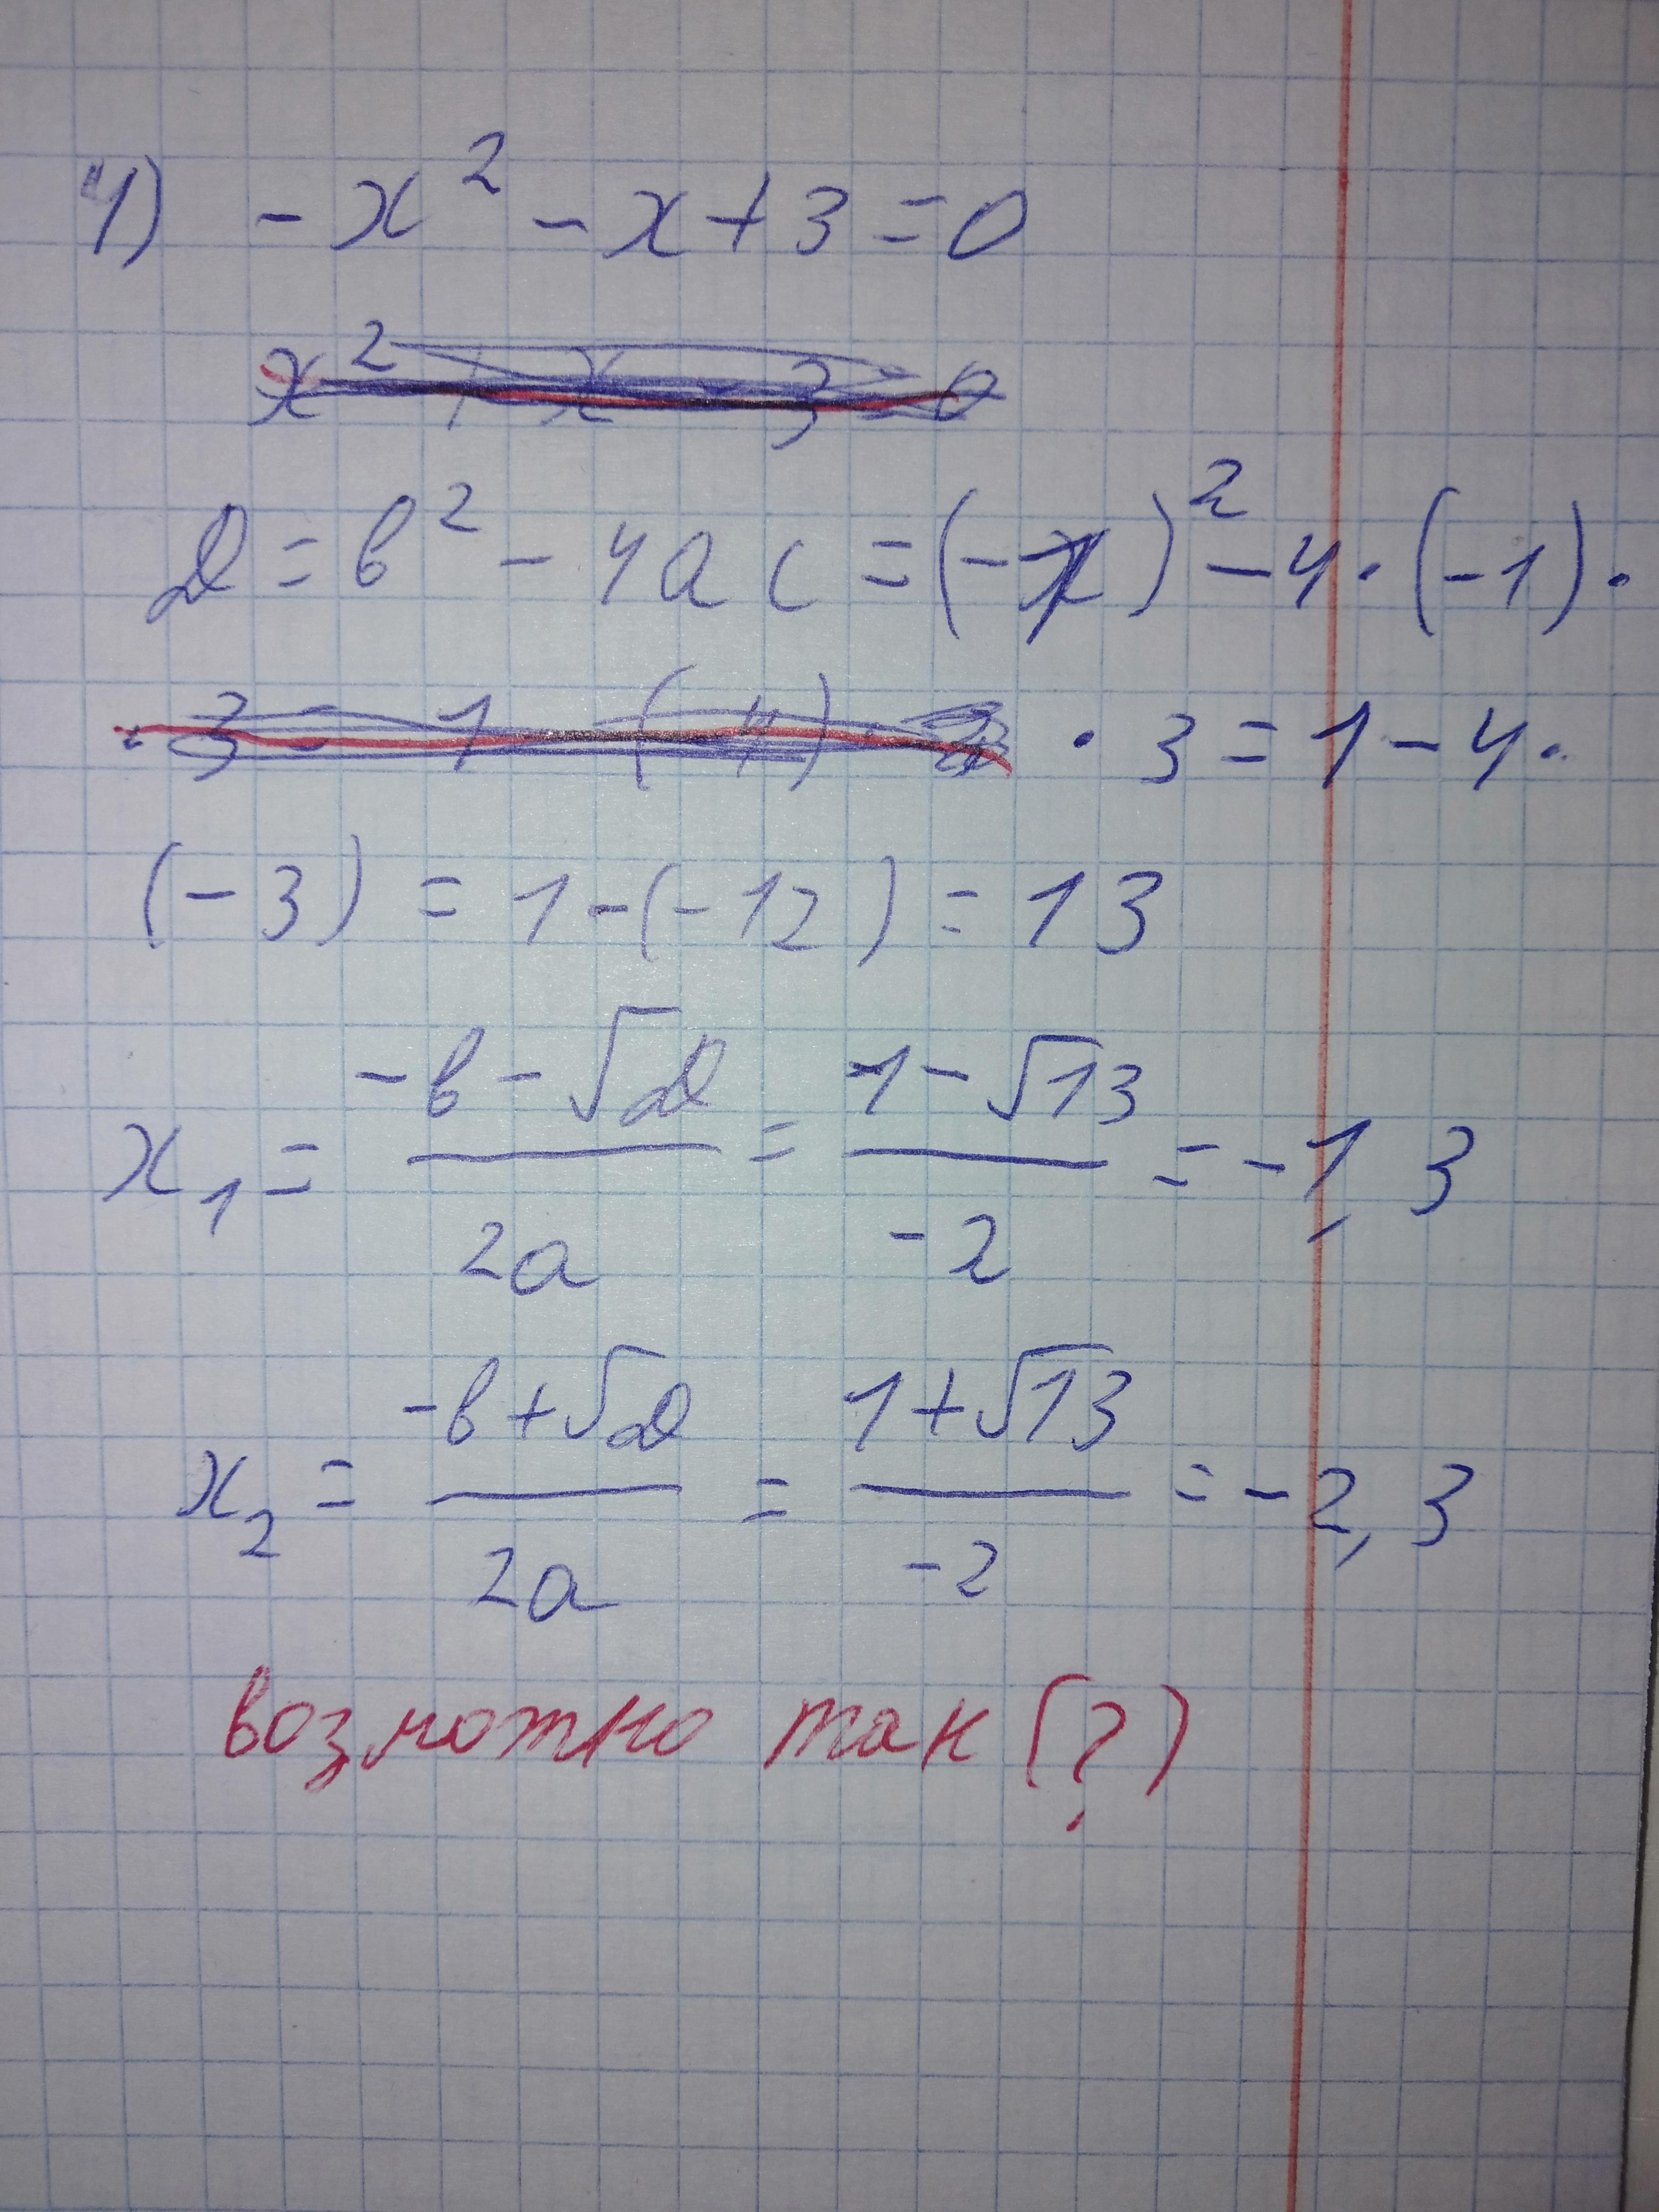 4) -x² - x + 3 = 0
x² + x - 3 = 0
D = b² - 4ac = (-1)² - 4 · (-1) ·
· 3 = 1 - 4 ·
(-3) = 1 - (-12) = 13
x₁ = (-b - √D)/(2a) = (1 - √13)/(-2) = -1,3
x₂ = (-b + √D)/(2a) = (1 + √13)/(-2) = -2,3
возможно так (?)